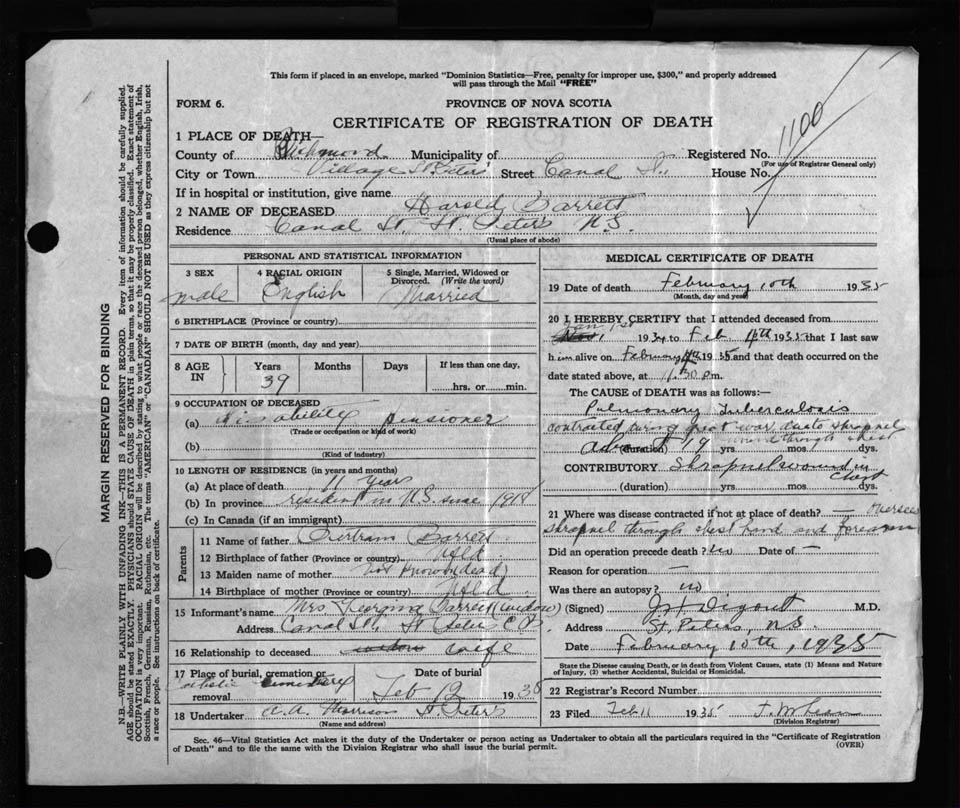 This form if placed in an envelope, marked "Dominion Statistics—Free, penalty for improper use, $300," and properly addressed
will pass through the Mail "FREE"
FORM 6.
PROVINCE OF NOVA SCOTIA
CERTIFICATE OF REGISTRATION OF DEATH
1100
1 PLACE OF DEATH—
County of Richmond Municipality of Registered No.
(For use of Registrar General only)
City or Town Village St Peters Street Canal St. House No.
If in hospital or institution, give name
2 NAME OF DECEASED Harold Barrett
Residence Canal St, St. Peter's N.S.
(Usual place of abode)
PERSONAL AND STATISTICAL INFORMATION
3 SEX 4 RACIAL ORIGIN 5 Single, Married, Widowed or Divorced. (Write the word)
male English Married
6 BIRTHPLACE (Province or country)
7 DATE OF BIRTH (month, day and year)
8 AGE IN Years Months Days If less than one day,
39
hrs. or min.
9 OCCUPATION OF DECEASED
(a) Disability pensioner
(Trade or occupation or kind of work)
(b)
(Kind of industry)
10 LENGTH OF RESIDENCE (in years and months)
(a) At place of death 11 years
(b) In province resident in N.S. since 1918
(c) In Canada (if an immigrant)
Parents
11 Name of father Bertram Barrett
12 Birthplace of father (Province or country) Nfld
13 Maiden name of mother not known (dead)
14 Birthplace of mother (Province or country) Nfld
15 Informant's name Mrs Georgina Barrett (widow)
Address Canal St, St Peter C.B.
16 Relationship to deceased widow wife
17 Place of burial, cremation or removal Date of burial
Catholic Cemetery Feb 12 1935
18 Undertaker A.A. Morrison St Peter's
(Name and address)
MEDICAL CERTIFICATE OF DEATH
19 Date of death February 10th 1935
(Month, day and year)
20 I HEREBY CERTIFY that I attended deceased from
Jan 1st
1934 to Feb 10th 1935 that I last saw
him alive on February 1935 and that death occurred on the
date stated above, at 11.30 p.m.
The CAUSE of DEATH was as follows:
Pulmonary Tuberculosis
contracted during great war due to shrapnel
wound through chest
(duration) 19 yrs. mos. dys.
CONTRIBUTORY Shrapnel wound in
chest
(duration) yrs. mos. dys.
21 Where was disease contracted if not at place of death? — Overseas
shrapnel through chest hand and forearm
Did an operation precede death? no Date of —
Reason for operation —
Was there an autopsy? no
(Signed) Digout M.D.
Address St. Peters, N.S.
Date February 10th, 1935
State the Disease causing Death, or in death from Violent Causes, state (1) Means and Nature
of Injury, (2) whether Accidental, Suicidal or Homicidal.
22 Registrar's Record Number
23 Filed Feb 11 1935
(Division Registrar)
Sec. 46—Vital Statistics Act makes it the duty of the Undertaker or person acting as Undertaker to obtain all the particulars required in the "Certificate of Registration
of Death" and to file the same with the Division Registrar who shall issue the burial permit.
(OVER)
MARGIN RESERVED FOR BINDING
N.B.—WRITE PLAINLY WITH UNFADING INK—THIS IS A PERMANENT RECORD. Every item of information should be carefully supplied.
AGE should be stated EXACTLY. PHYSICIANS should STATE CAUSE OF DEATH in plain terms, so that it may be properly classified. Exact statement of
OCCUPATION is very important. RACIAL ORIGIN will be described by stating to what people or race the deceased person belonged, whether English, Irish,
Scottish, French, German, Russian, Ruthenian, etc. The terms "AMERICAN" or "CANADIAN" SHOULD NOT BE USED as they express citizenship but not
a race or people. See instructions on back of certificate.